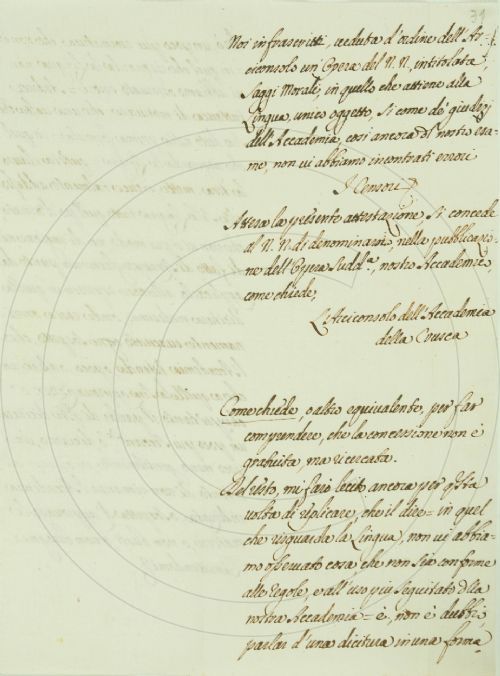 39
Noi infrascritti, veduta d'ordine dell'Ar-
ciconsolo un'Opera del N. N., intitolata,
Saggi Morali, in quello che attiene alla
Lingua, unico oggetto, sì come de' giudizj
dell'Accademia, così ancora del nostro esa-
me, non vi abbiamo incontrati errori
I Censori
Attesa la presente attestazione, si concede
al N. N. di denominarsi, nella pubblicazio-
ne dell'Opera Sudd.ª, nostro Accademico
come chiede,
L'Arciconsolo dell'Accademia
della Crusca
Come chiede, o altro equivalente, per far
comprendere, che la concessione non è
gratuita, ma ricercata.
Del resto, mi farò lecito ancora per q.sta
volta di replicare, che il dire = in quel
che risguarda la Lingua, non vi abbia-
mo osservato cosa che non sia conforme
alle regole, e all'uso più seguitato della
nostra Accademia = è, non è dubbio,
parlar d'una dicitura in una forma